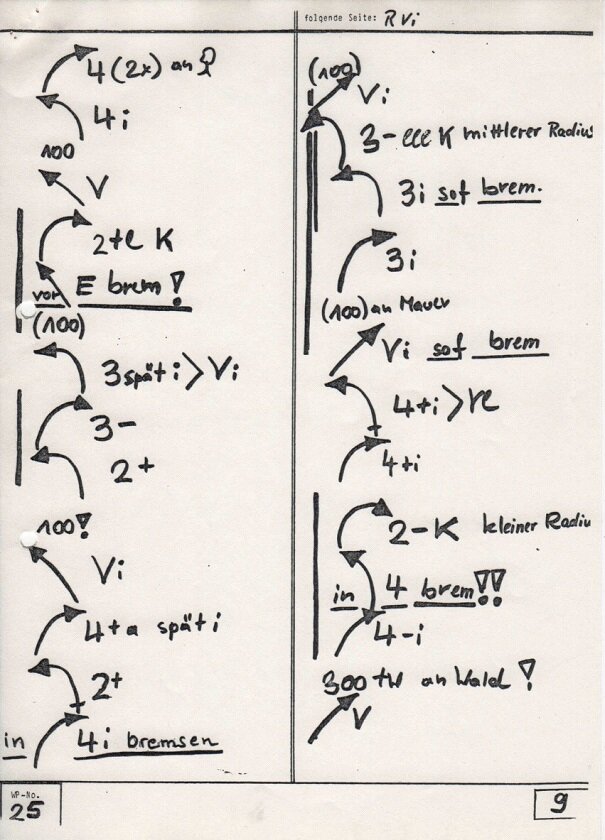 folgende Seite: R Vi
4 (2x) an
4i
100
V
2+ll K
vor E brem!
(100)
3 spät i > Vi
3-
2+
100!
Vi
4+a spät i
2+
in 4i bremsen
(100)
Vi
3- lll K mittlerer Radius
3i sof brem.
3i
(100) an Mauer
Vi sof brem
4+i >
4+i
2-K kleiner Radiu
in 4 brem!!
4-i
300 tw an Wald !
V
WP-No.
25
9